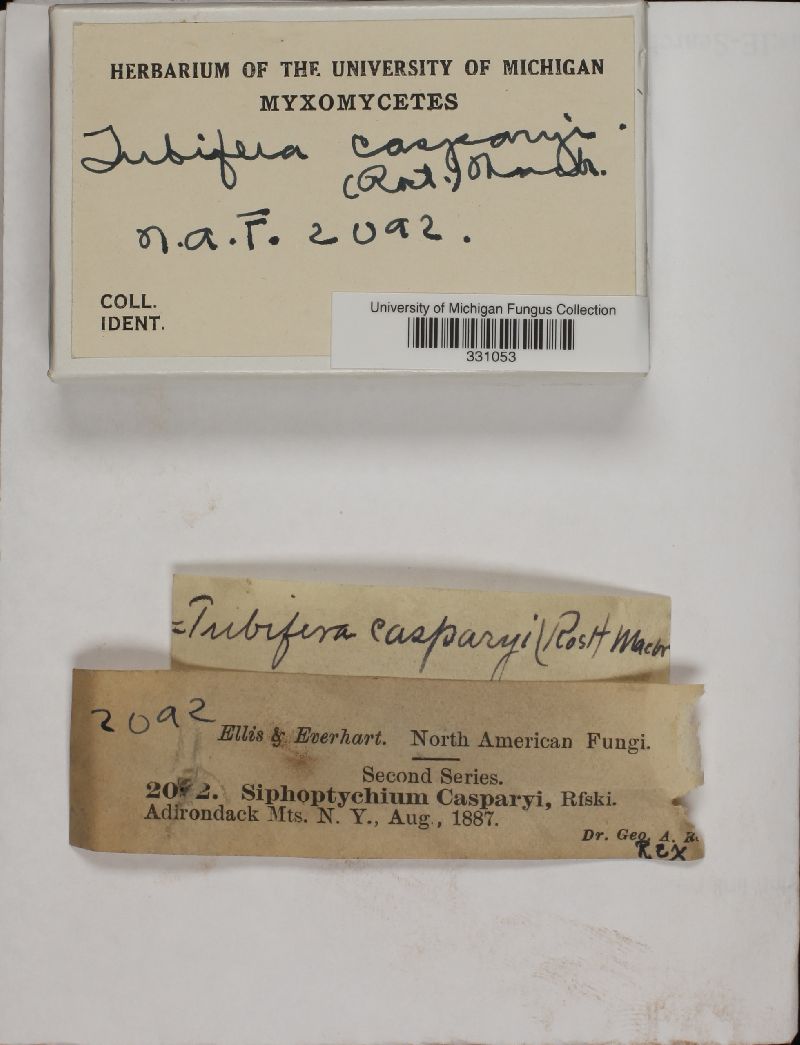 HERBARIUM OF THE UNIVERSITY OF MICHIGAN
MYXOMYCETES
Tubifera casparyi.
(Rost.) Macbr.
N.A.F. 2092.
COLL.
IDENT.
University of Michigan Fungus Collection
331053
=Tubifera casparyi (Rost) Macbr
2092
Ellis & Everhart. North American Fungi.
Second Series.
2092. Siphoptychium Casparyi, Rfski.
Adirondack Mts. N. Y., Aug., 1887.
Dr. Geo. A. R.
Rex